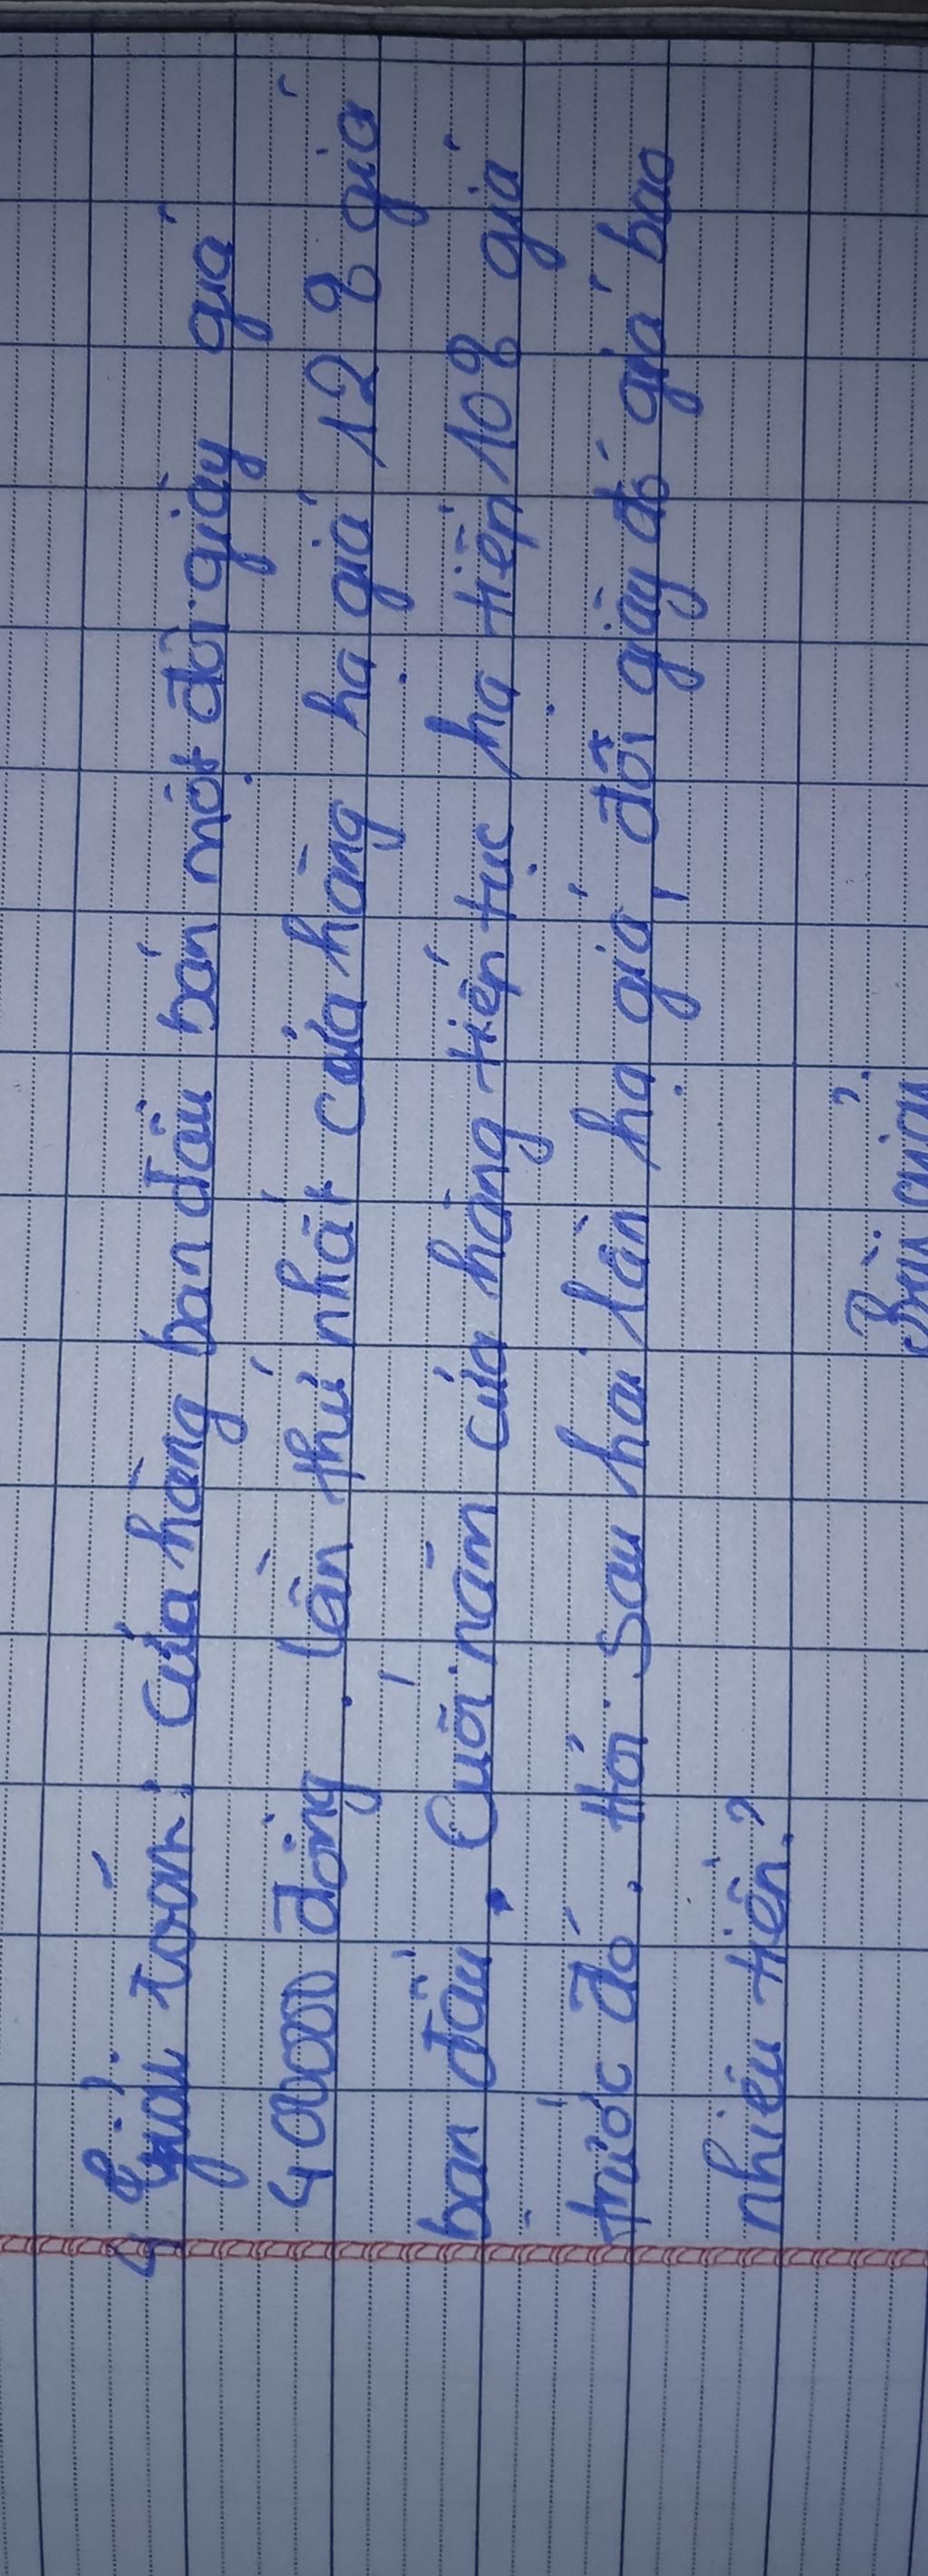 4 Giải toán: Cửa hàng ban đầu bán một đôi giày giá
40000 đồng. lần thứ nhất cửa hàng hạ giá 12% giá
ban đầu. Cuối năm cửa hàng tiếp tục hạ tiếp 10% giá
trước đó. Hỏi sau hai lần hạ giá, đôi giày đó giá bao
nhiêu tiền?
Bài giải